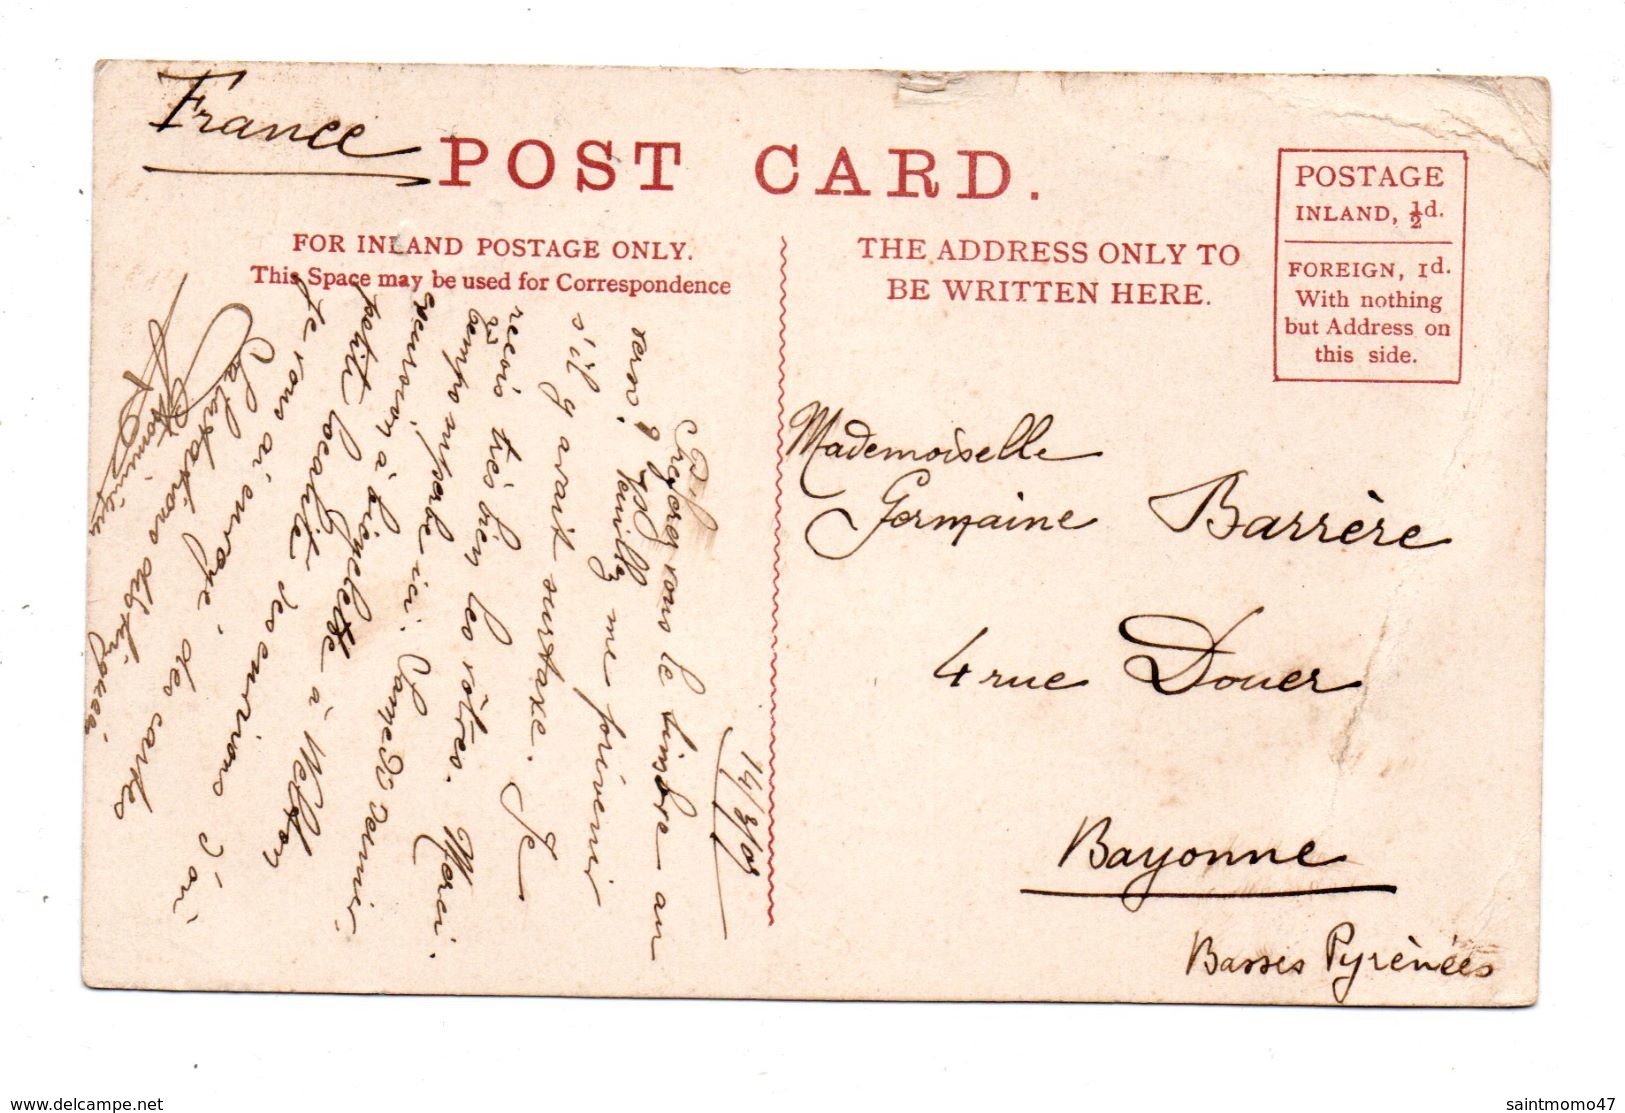 France
POST CARD.
FOR INLAND POSTAGE ONLY.
This Space may be used for Correspondence
THE ADDRESS ONLY TO
BE WRITTEN HERE.
POSTAGE
INLAND, ½d.
FOREIGN, 1d.
With nothing
but Address on
this side.
14/3/05
vous le timbre au
verso? Veuillez me prévenir
s'il y avait surtaxe. Je
reçois très bien les vôtres. Merci.
temps superbe ici. Samedi dernier,
excursion à bicyclette à Welton
petite localité des environs d'où
je vous ai envoyé des cartes
Salutations distinguées
Mademoiselle
Germaine Barrère
4 rue Douer
Bayonne
Basses Pyrénées
www.delcampe.net
saintmomo47